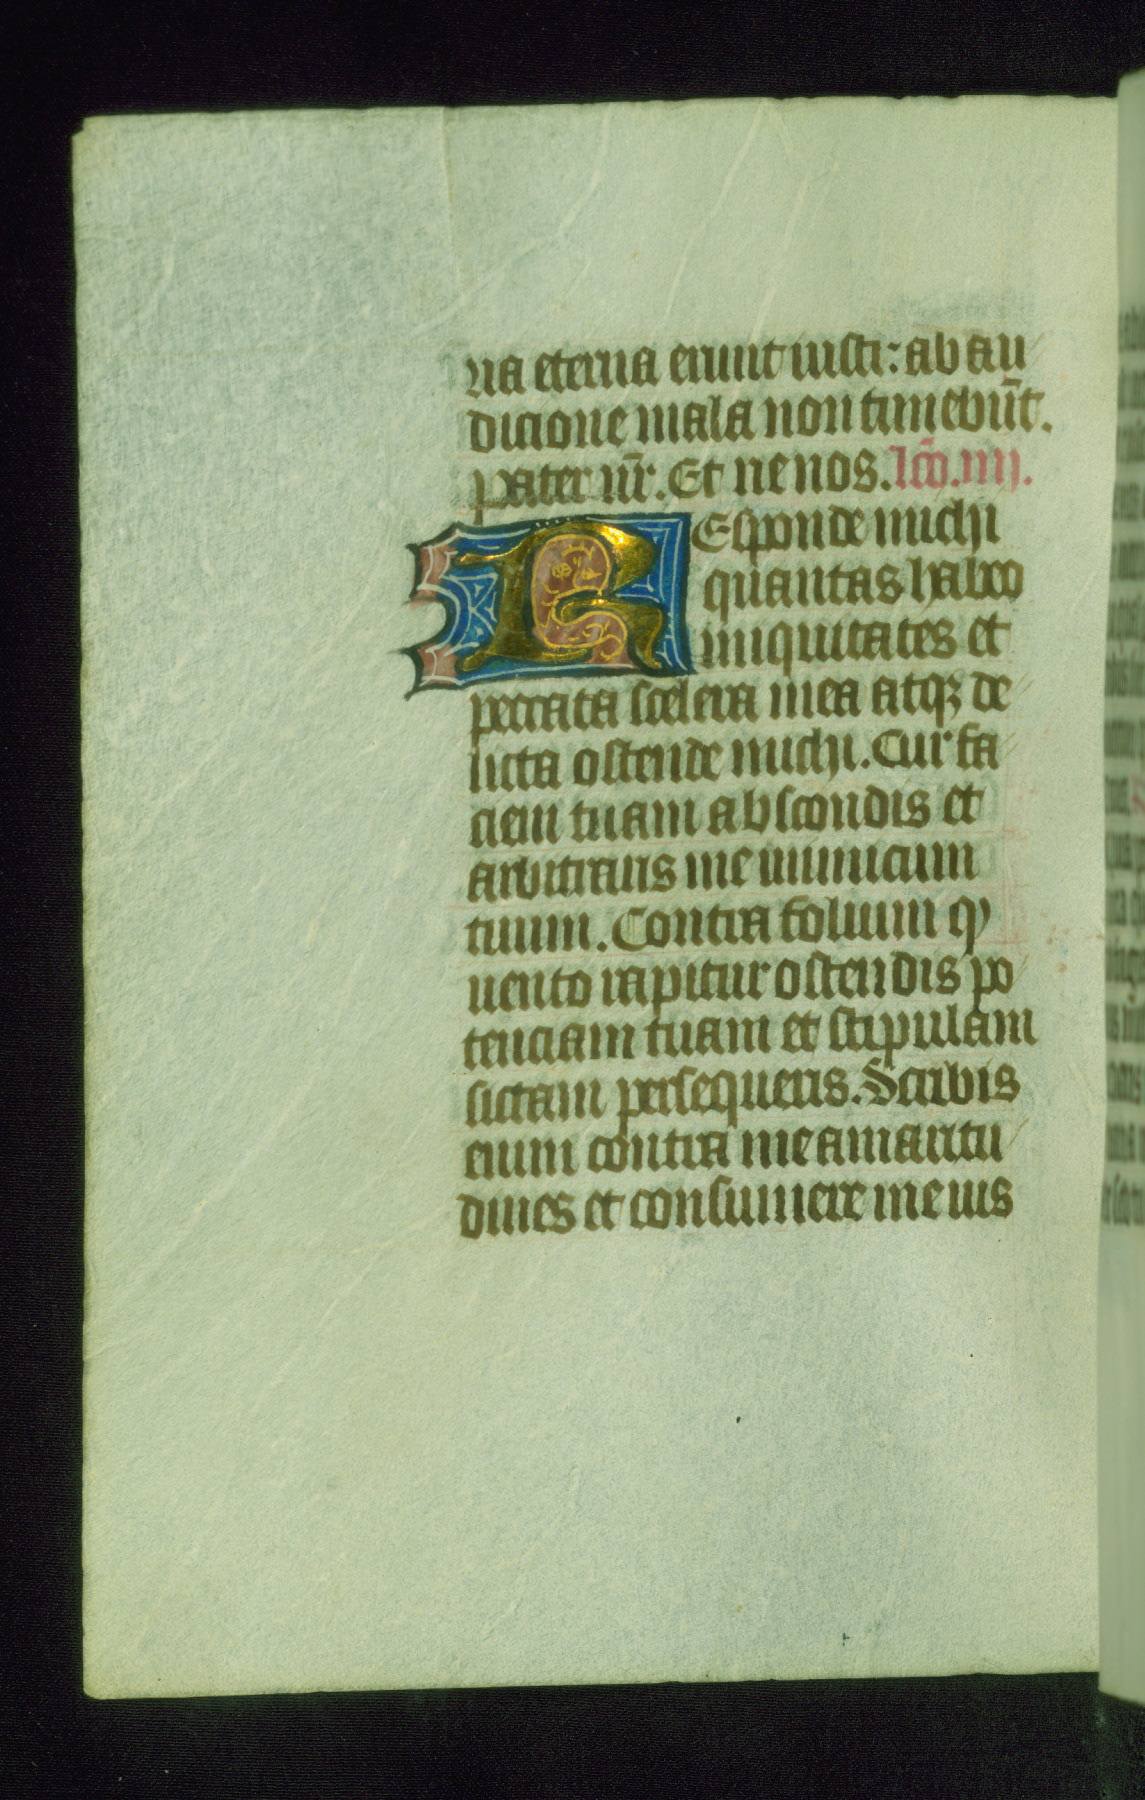 ria eterna erunt iusti: ab au
dicione mala non timebūt.
pater nr̄. Et ne nos. lc̄o. iiij.
Responde michi
quantas habeo
iniquitates et
peccata scelera mea atqꝫ de
licta ostende michi. Cur fa
ciem tuam abscondis et
arbitraris me inimicum
tuum. Contra folium qd
uento rapitur ostendis po
tenciam tuam et stipulam
siccam persequeris. Scribis
enim contra me amaritu
dines et consumere me uis